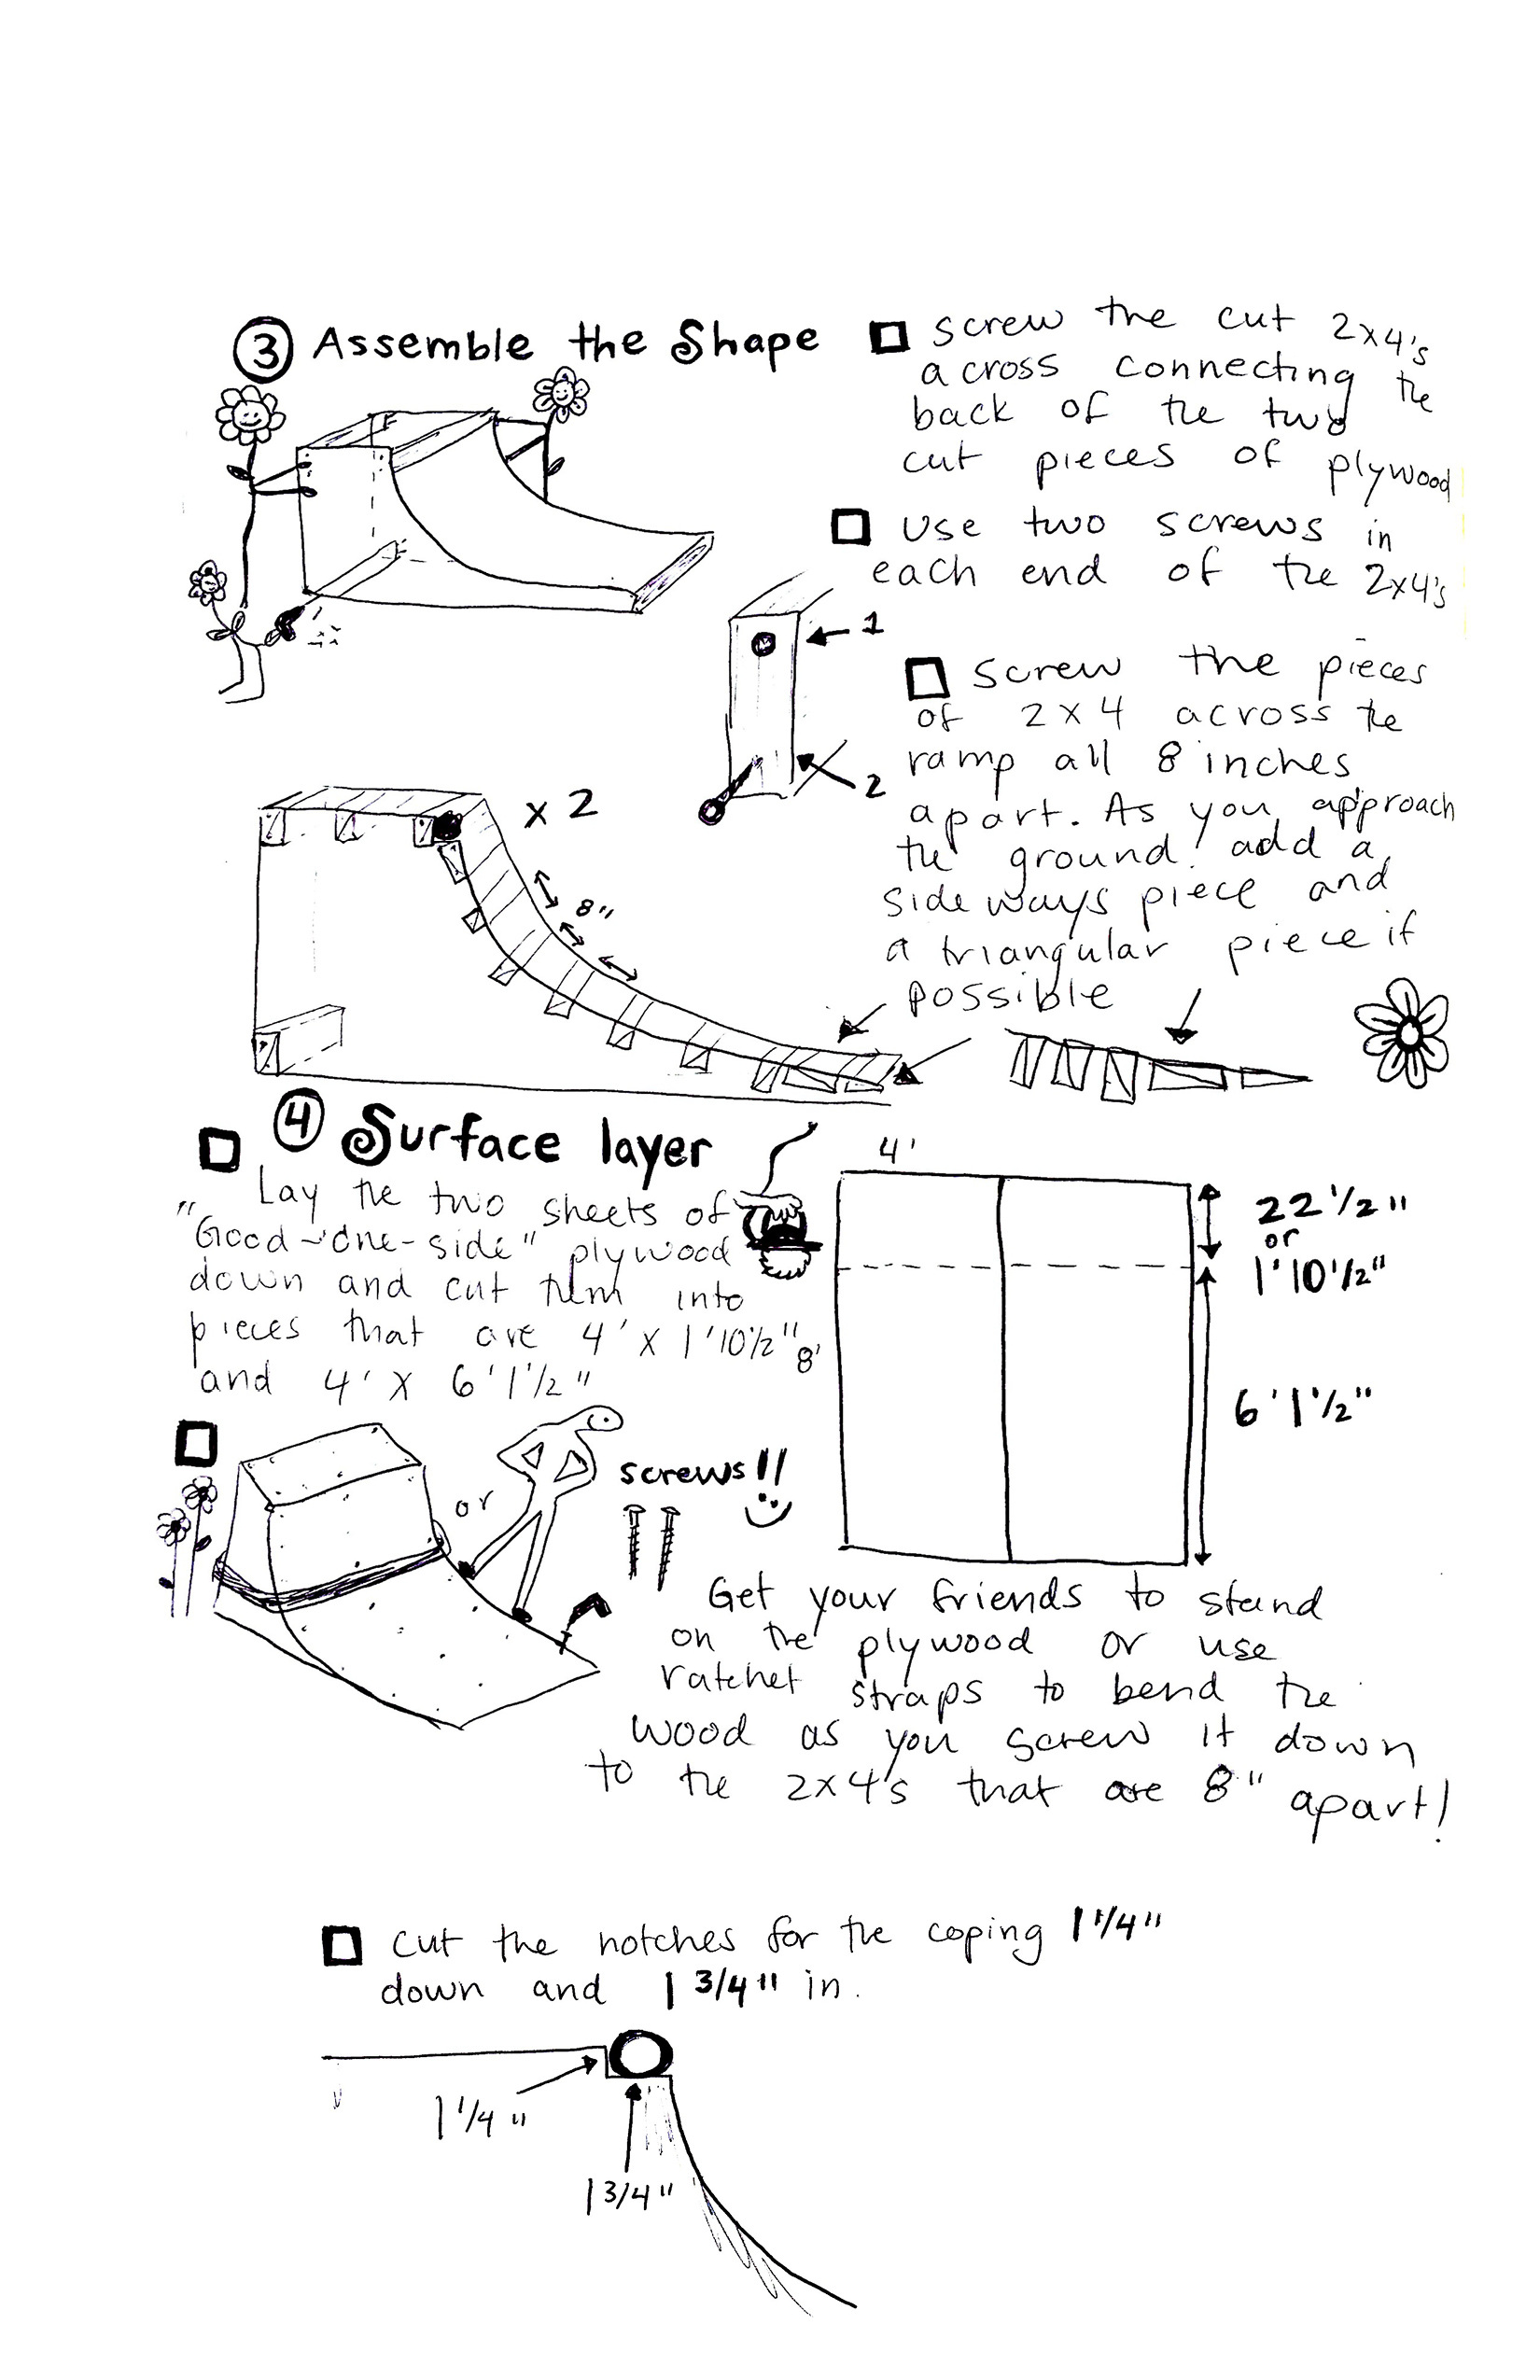 3 Assemble the Shape
screw the cut 2x4's
across connecting the
back of the two
cut pieces of plywood
use two screws in
each end of the 2x4's
1
2
screw the pieces
of 2x4 across the
ramp all 8 inches
apart. As you approach
the ground! add a
sideways piece and
a triangular piece if
possible
x 2
8"
4 Surface layer
Lay the two sheets of
"Good-one-side" plywood
down and cut them into
pieces that are 4' x 1'10 1/2"
and 4' x 6'1 1/2"
4'
8'
22 1/2"
or
1'10 1/2"
6'1 1/2"
or
screws!!
Get your friends to stand
on the plywood or use
ratchet straps to bend the
wood as you screw it down
to the 2x4's that are 8" apart!
cut the notches for the coping 1 1/4"
down and 1 3/4" in.
1 1/4"
1 3/4"